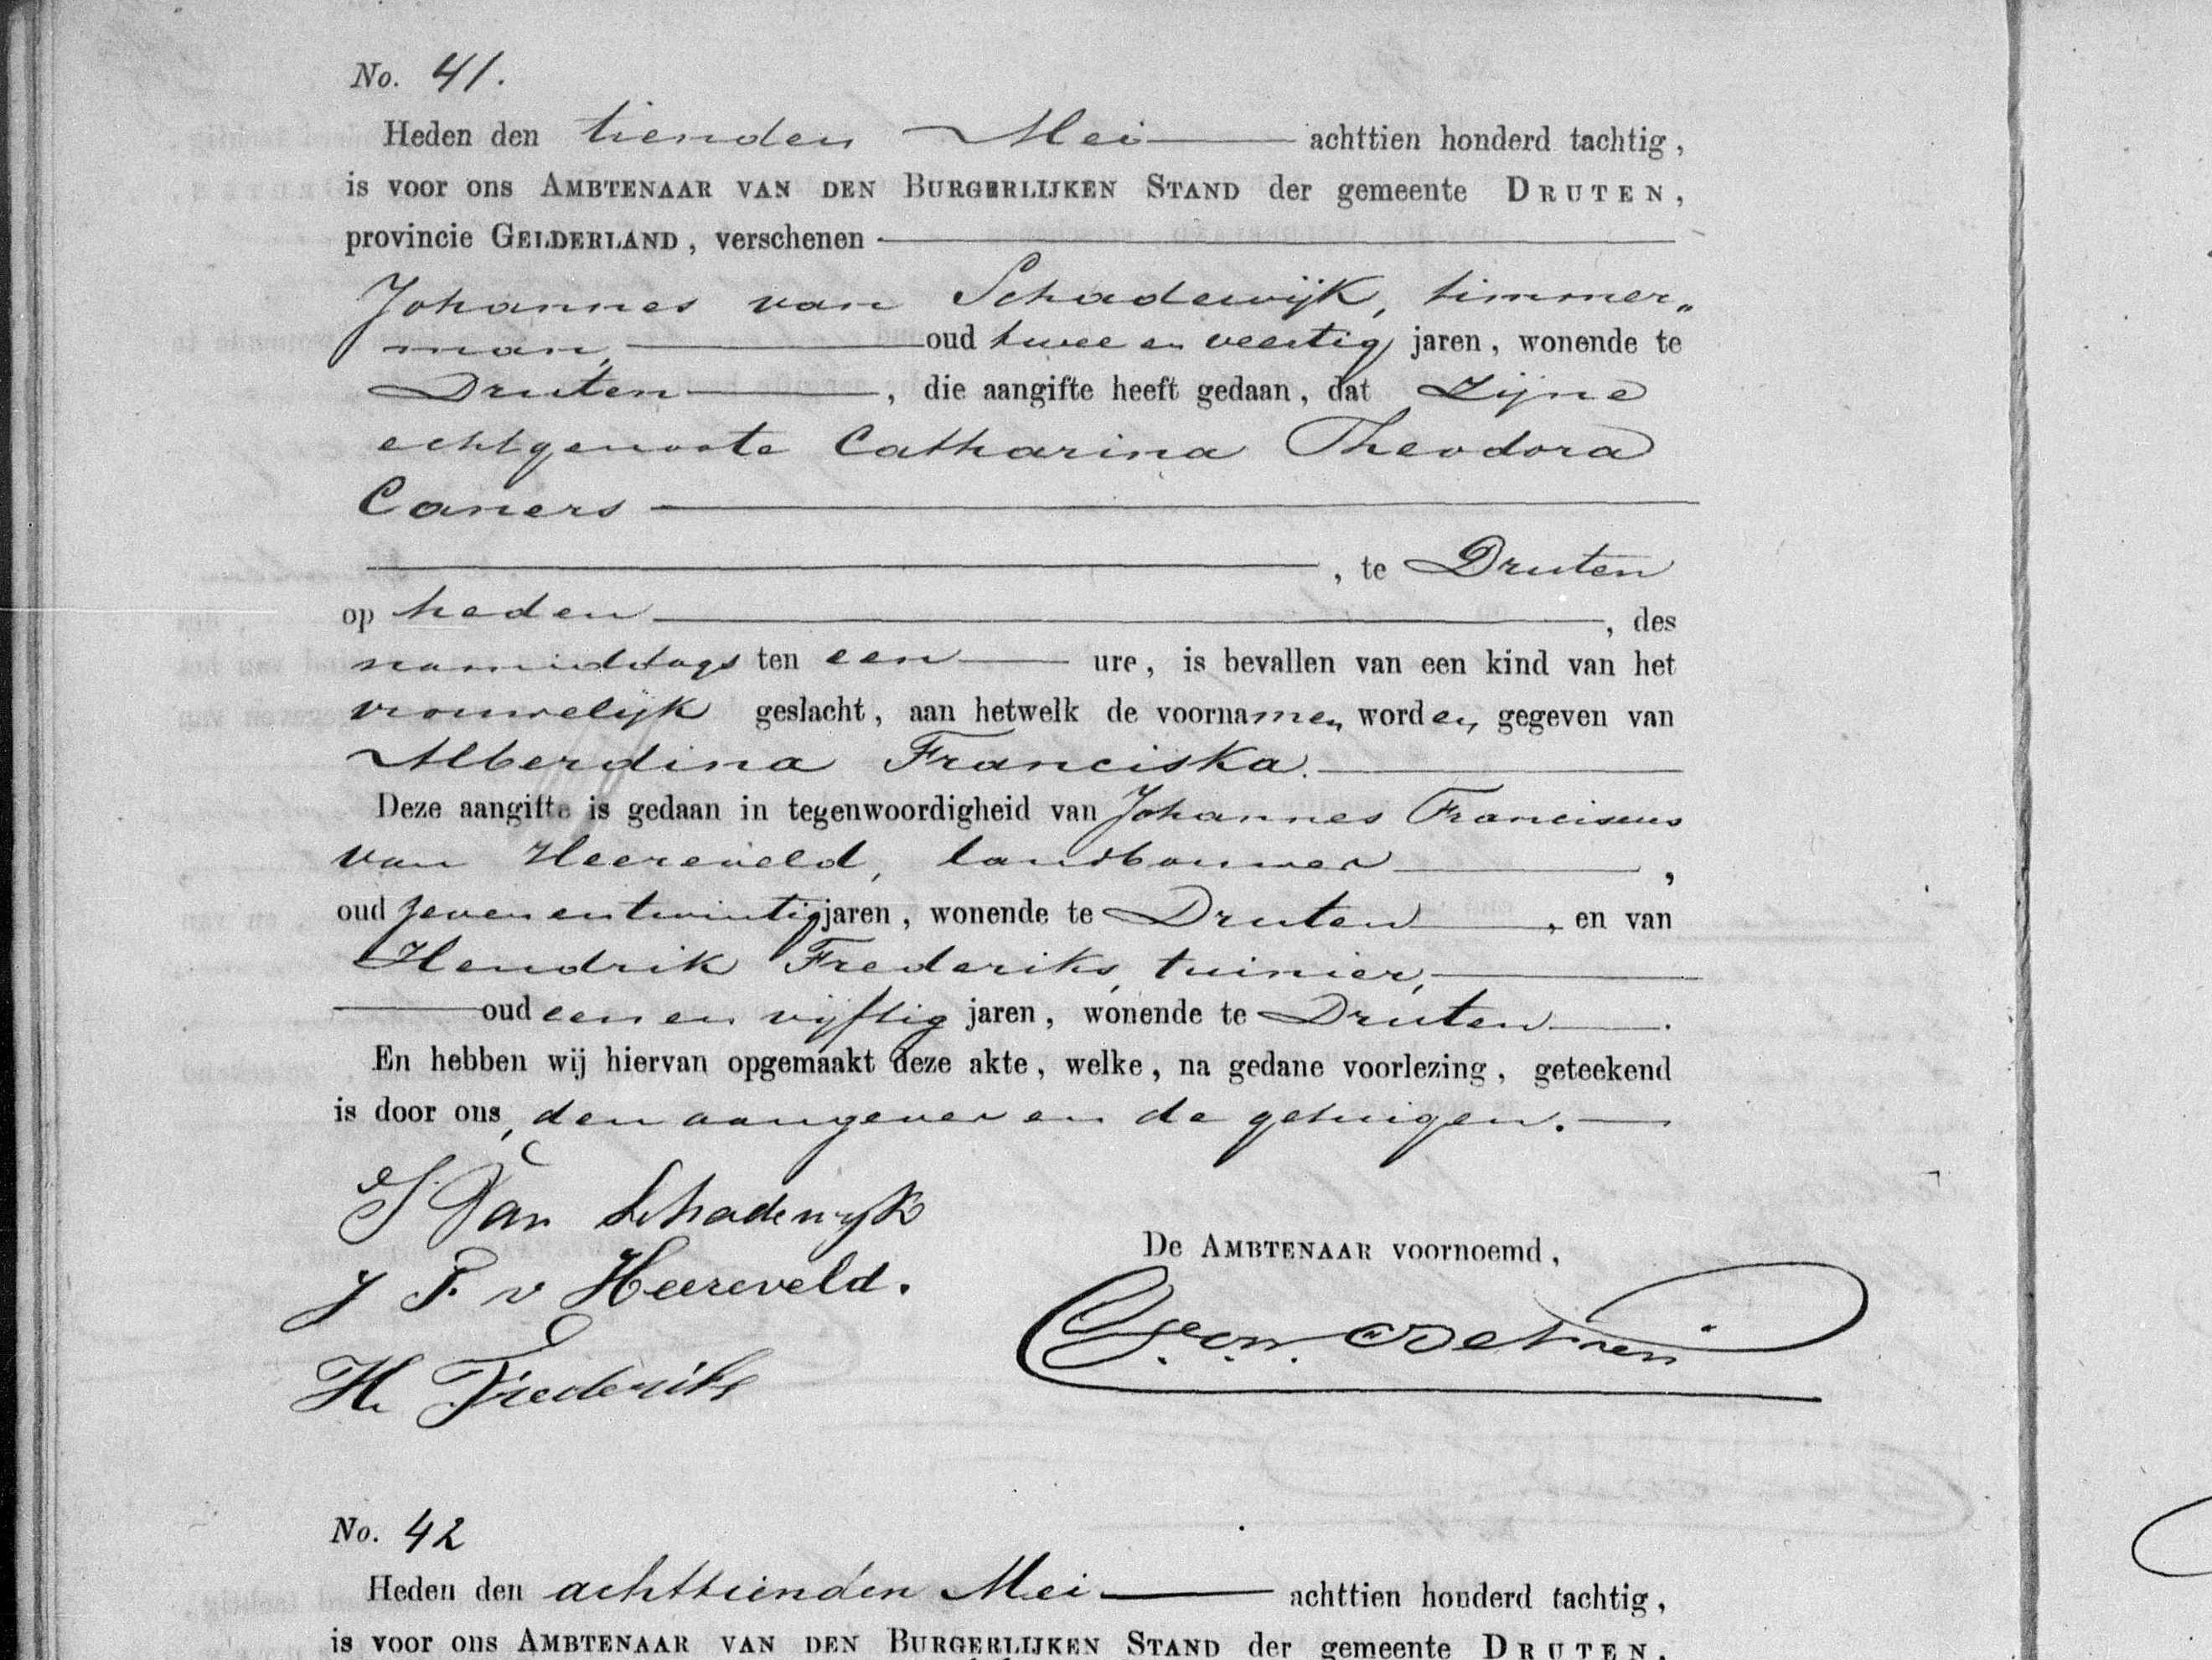 No. 41.
Heden den tienden Mei achttien honderd tachtig,
is voor ons AMBTENAAR VAN DEN BURGERLIJKEN STAND der gemeente DRUTEN,
provincie GELDERLAND, verschenen
Johannes van Schadewijk, timmer„
man, oud twee en veertig jaren, wonende te
Druten, die aangifte heeft gedaan, dat zijne
echtgenoote Catharina Theodora
Caners
, te Druten
op heden, des
namiddags ten een ure, is bevallen van een kind van het
vrouwelijk geslacht, aan hetwelk de voornamen worden gegeven van
Alberdina Franciska.
Deze aangifte is gedaan in tegenwoordigheid van Johannes Franciscus
van Heereveld, landbouwer,
oud zeven en twintig jaren, wonende te Druten, en van
Hendrik Frederiks, tuinier,
oud een en vijftig jaren, wonende te Druten.
En hebben wij hiervan opgemaakt deze akte, welke, na gedane voorlezing, geteekend
is door ons, den aangever en de getuigen.
J Van Schadewijk
De AMBTENAAR voornoemd,
J F. v Heereveld.
H Frederiks
No. 42
Heden den achttienden Mei achttien honderd tachtig,
is voor ons AMBTENAAR VAN DEN BURGERLIJKEN STAND der gemeente DRUTEN,